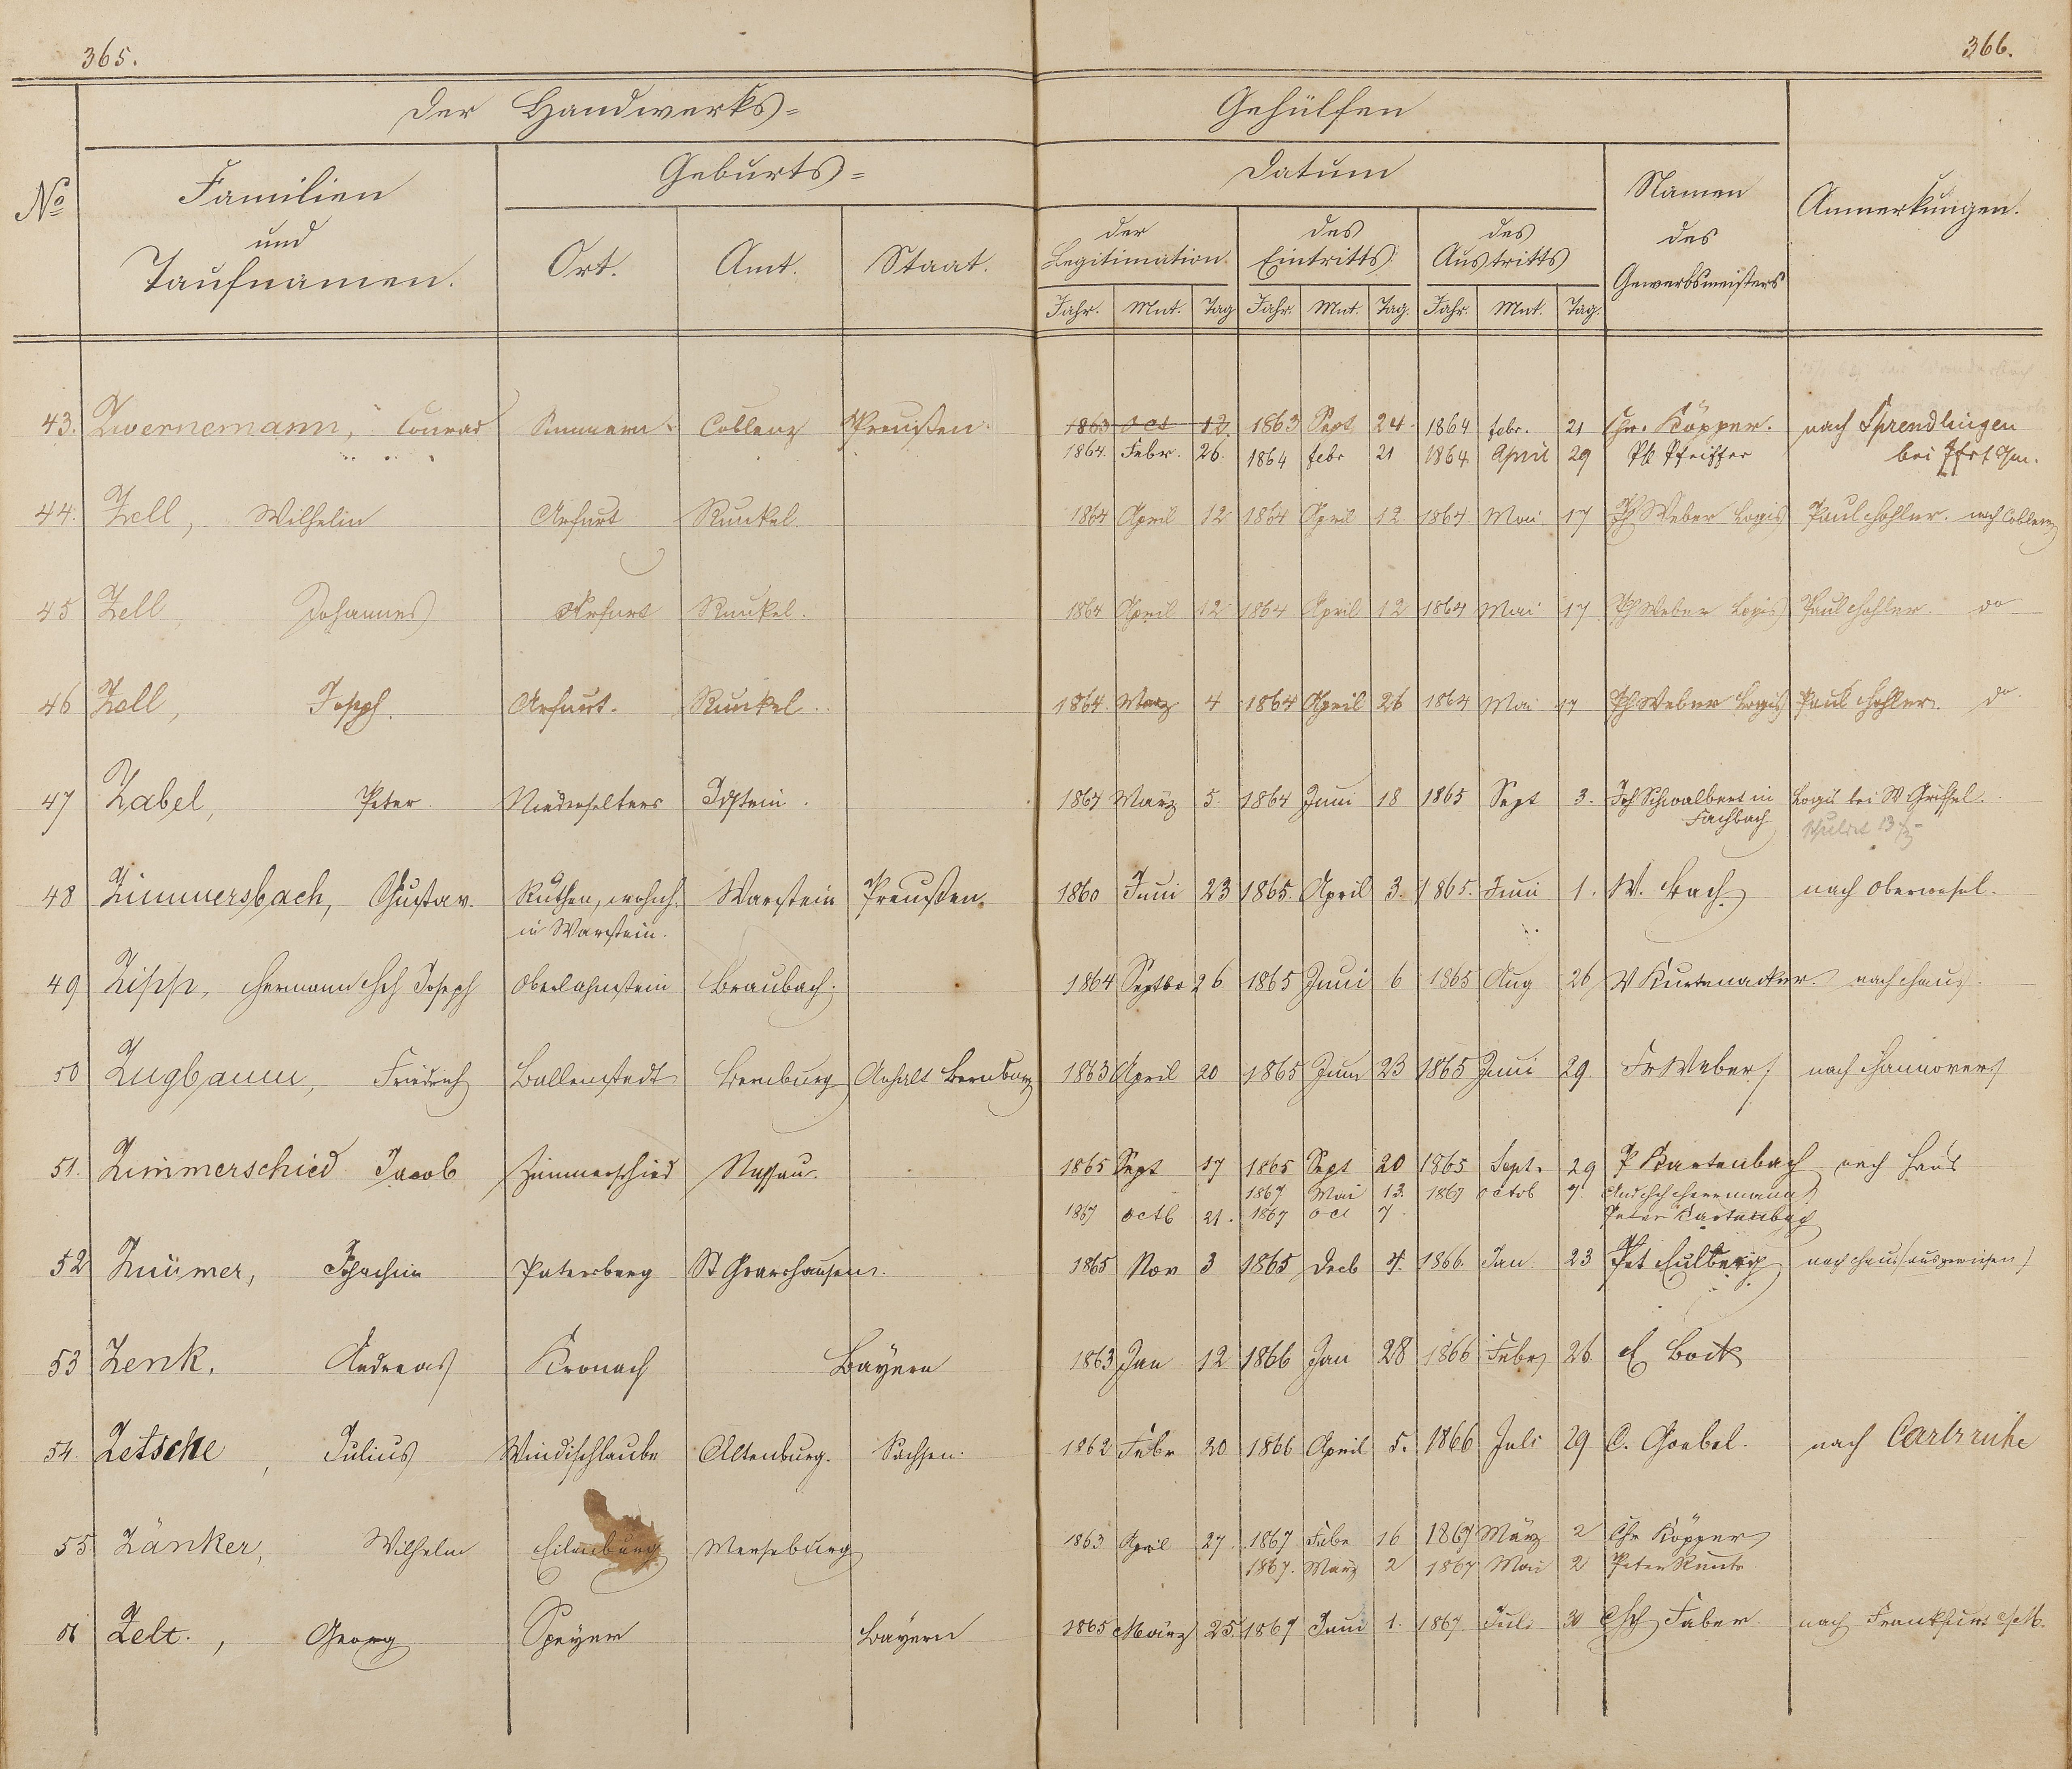 365.
366.
Der Handwerks=
Gehülfen
No
Familien
und
Taufnamen.
Geburts=
Ort.
Amt.
Staat.
Datum
der
Legitimation.
des
Eintritts
des
Austritts
Jahr. Mnt. Tag Jahr. Mnt. Tag. Jahr. Mnt. Tag.
Namen
des
Gewerbsmeisters
Anmerkungen.
43. Zwernemann, Conrad Simmern Coblenz Preußen. 1863 Oct 12. 1863 Sept 24 1864 febr. 21 Chr. Köpper. nach Sprendlingen
1864. Febr. 26. 1864 febr 21 1864 April 29 Ph Pfeiffer bei
44. Zell, Wilhelm Arfurt Runkel. 1864 April 12 1864 April 12 1864 Mai 17 Ph Weber Logis Paul Hohler. nach Coblenz
45 Zell, Johannes Arfurt Runkel. 1864 April 12 1864 April 12 1864 Mai 17 Ph Weber Logis Paul Hohler do
46 Zell, Joseph. Arfurt. Runkel. 1864. Marz 4 1864 April 26 1864 Mai 17 Ph Weber Logis Paul Hohler. do.
47 Zabel, Peter. Niederselters Idstein. 1864 März 5. 1864 Juni 18 1865 Sept 3. Joh Schwalbert in Logis bei
Fachbach schuldet 13
48 Zimmersbach, Gustav. Rüthen, wohnh. Warstein Preußen. 1860 Juni 23 1865. April 3. 1865. Juni 1. W. Bach. nach Oberwesel.
in Warstein.
49 Zipp, Hermann Hch Joseph Oberlahnstein Braubach. 1864 Septbr 26 1865 Juni 6 1865 Aug 26 W Kurtenacker. nach Haus.
50 Zugbaum, Friedrich Ballenstedt Bernburg Anhalt Bernburg 1863 April 20 1865 Juni 23 1865 Juni 29. Fr Weber nach Hannover
51. Zimmerschied Jacob Zimmerschied Nassau. 1865 Sept 17 1865 Sept 20 1865 Sept. 29 P Kartenbach nach Haus
1867 Mai 13. 1867 Octob 7. And Hch Herrmann
1867 Octb 21. 1867 Oct 7 Peter Kartenbach
52 Joachim Patersberg St Goarshausen. 1865 Nov 3 1865 Decb 4. 1866. Jan. 23 Pet Eulberg nach Haus (ausgewiesen)
53 Zenk, Andreas Kronach Bayern 1863 Jan 12 1866 Jan 28 1866 Febr 26. E Bock
54. Zetsche, Julius Windischleube Altenburg. Sachsen. 1862 Febr 20 1866 April 5. 1866 Juli 29 C. Goebel. nach Carlsruhe
55 Zänker, Wilhelm Eilenburg Merseburg 1863 April 27. 1867 Febr 16 1867 März 2 Chr Köpper
1867. März 2 1867 Mai 2 Peter
56 Zelt., Georg Speyer Bayern 1865 März 25. 1867 Juni 1. 1867. Juli 30 Hch Faber nach Frankfurt a/M.